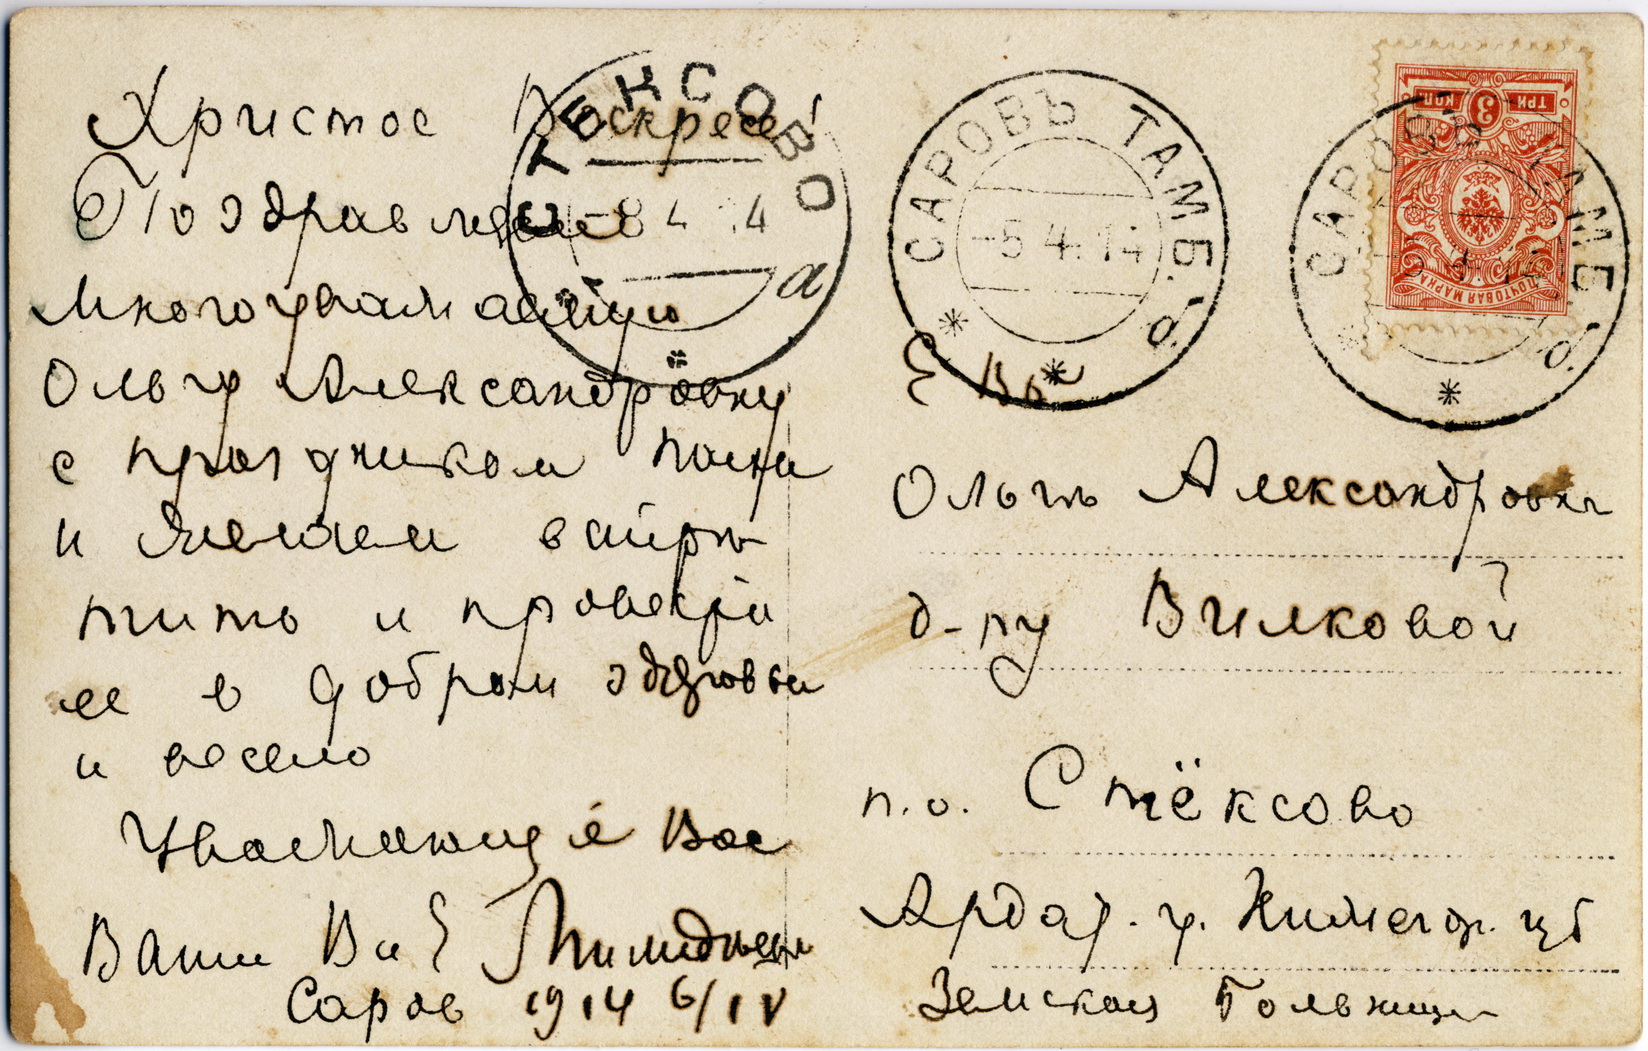 Христос Воскресе!
Поздравляем
многоуважаемую
Ольгу Александровну
с праздником пасхи
и желаем встре
тить и провести
ее в добром здоровьи
и весело
Уважающие Вас
Ваши В и Е
Саров 1914 6/IV
СТЕКСОВО
-8 4 14
а
САРОВЪ ТАМБ. Г.
-5 4.14
б.
САРОВЪ ТАМБ.
б.
3
ТРИ КОП
ПОЧТОВАЯ МАРКА
Е Вб
Ольгѣ Александровнѣ
д-ру Вилковой
п.о. Стёксово
Ардат. у. Нижегор. губ
Земская Больница